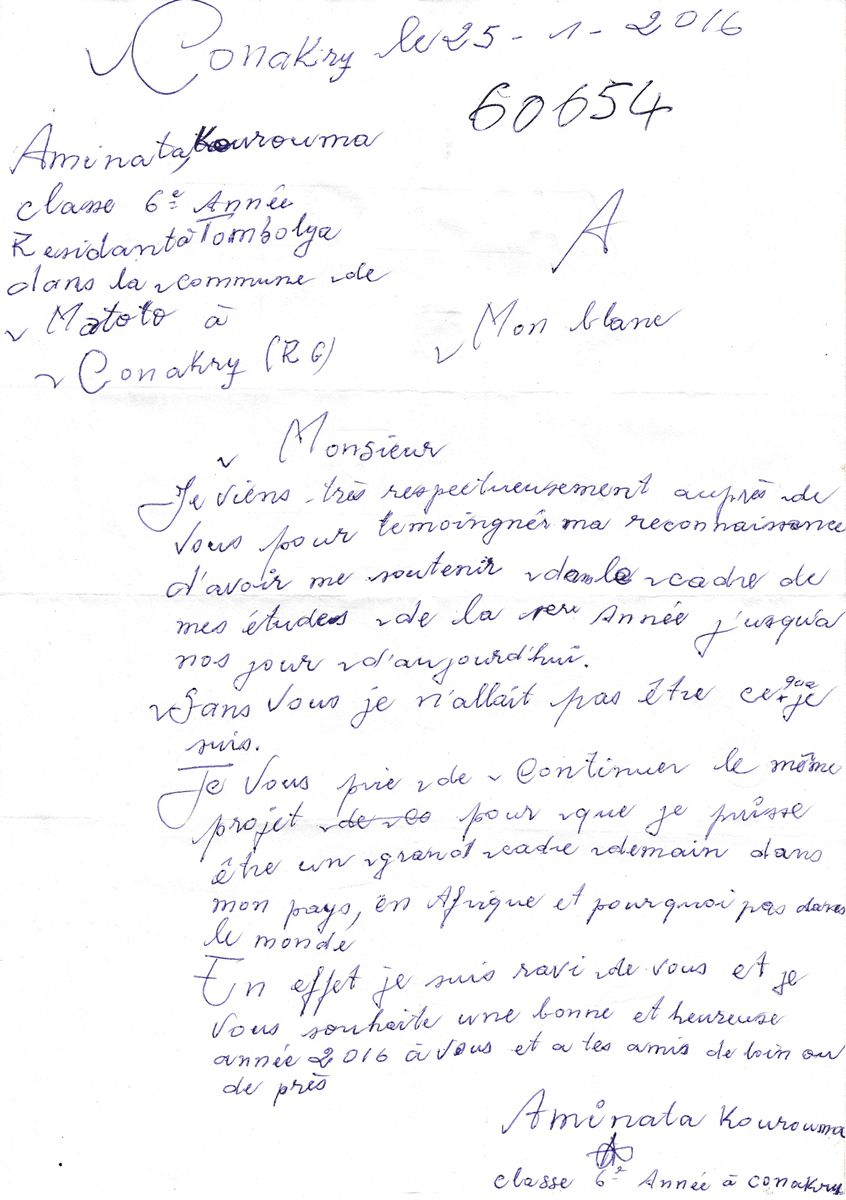 Conakry le 25-1-2016
60654
Aminata, Kourouma
classe 6e Année
Residant à Tombolya
dans la commune de
Matoto à
Conakry (RG)
A
Mon blanc
Monsieur
Je viens très respectueusement auprès de
vous pour temoingnér ma reconnaissance
d'avoir me soutenir dans le cadre de
mes études de la 1ere Année j'usqu'a
nos jour d'aujourd'hui.
Sans vous je n'allait pas être ce que je
suis.
Je vous prie de continuer le même
projet de ce pour que je puisse
être un grand cadre demain dans
mon pays, en Afrique et pourquoi pas dans
le monde
En effet je suis ravi de vous et je
vous souhaite une bonne et heureuse
année 2016 à vous et a tes amis de loin ou
de près
Aminata Kourouma
classe 6e Année à conakry